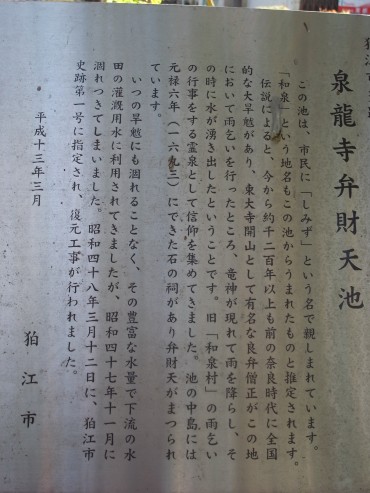 泉龍寺弁財天池
この池は、市民に「しみず」という名で親しまれています。
「和泉」という地名もこの池からうまれたものと推定されます。
伝説によると、今から約千二百年以上も前の奈良時代に全国
的な大旱魃があり、東大寺開山として有名な良弁僧正がこの地
において雨乞いを行ったところ、竜神が現れて雨を降らし、そ
の時に水が湧き出したということです。旧「和泉村」の雨乞い
の行事をする霊泉として信仰を集めてきました。池の中島には
元禄六年（一六九三）にできた石の祠があり弁財天がまつられ
ています。
いつの旱魃にも涸れることなく、その豊富な水量で下流の水
田の灌漑用水に利用されてきましたが、昭和四十七年十一月に
涸れつきてしまいました。昭和四十八年三月十二日に、狛江市
史跡第一号に指定され、復元工事が行われました。
平成十三年三月
狛江市